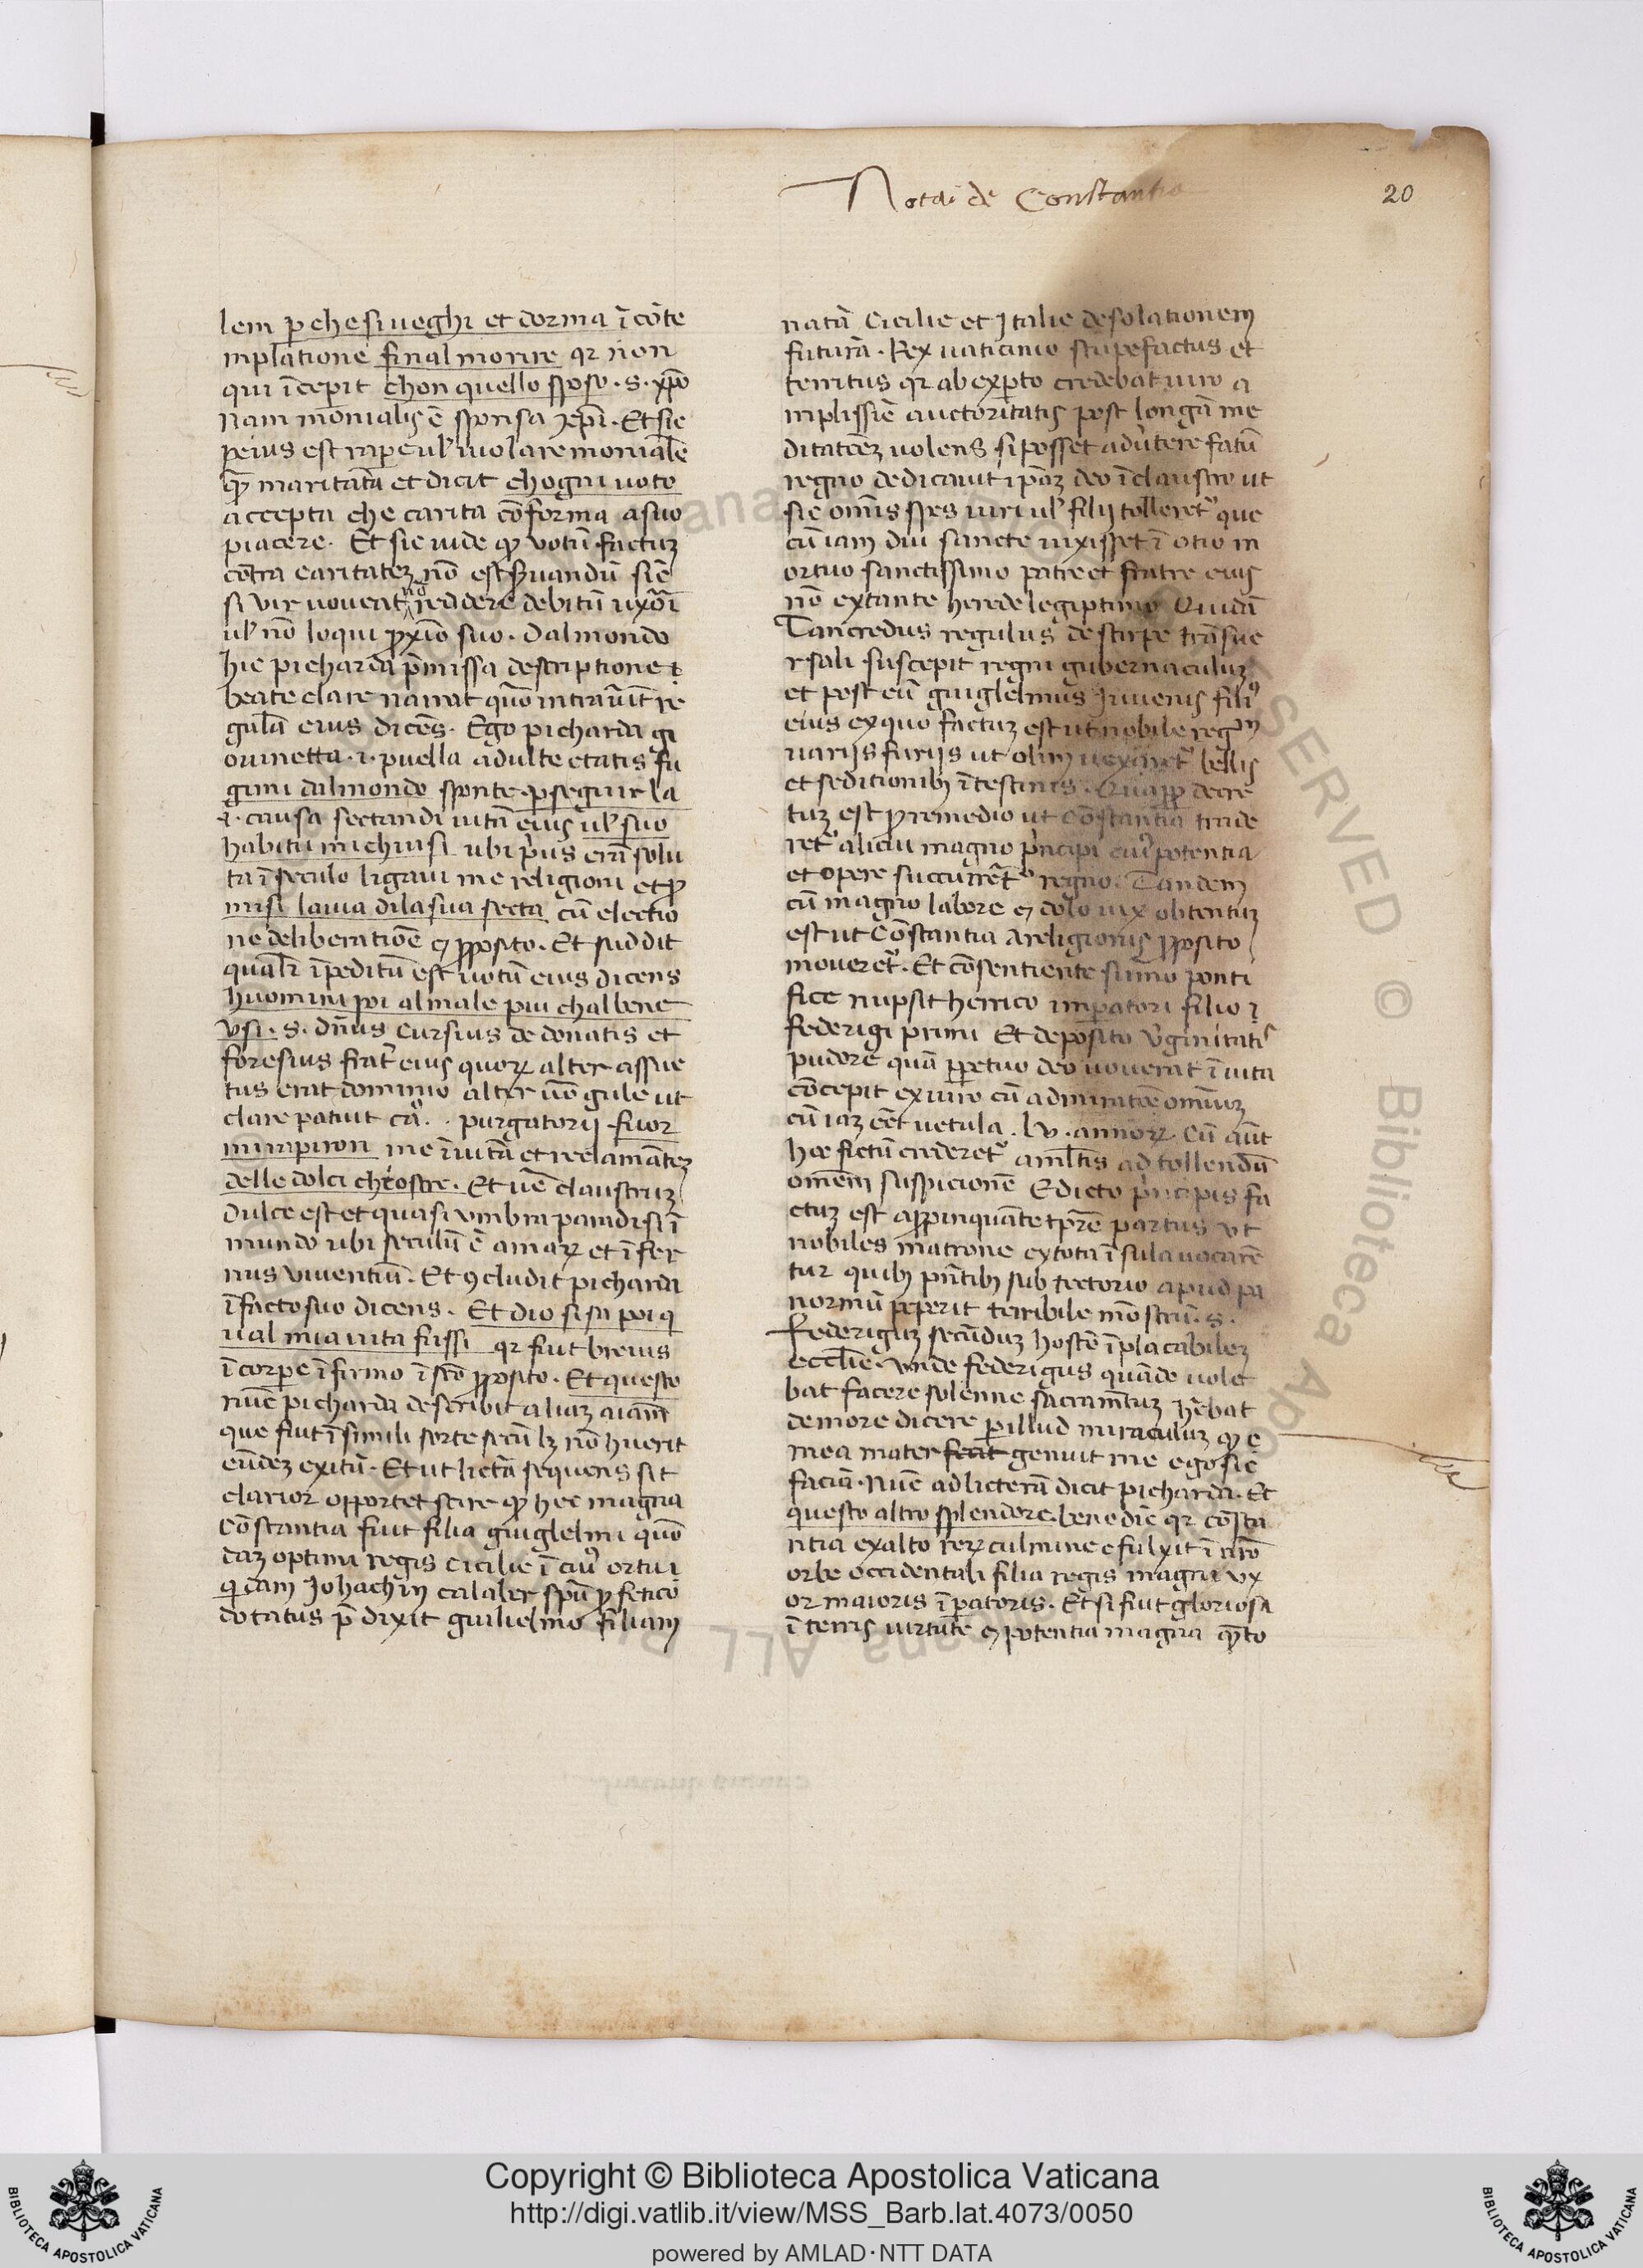 Notai de Constantia
20
lem p che si ueghi et dorma ī cōte
mplatione final morire qr non
qui īcepit chon quello sposo . s . xp̄o
Nam monialis ē sponsa
peius est rapere ul' uiolare monialē
q̄ maritatā et dicit ch ogni uoto
accepta che carita cōforma a suo
piacere . Et sic uide q̄ votū factuz
cōtra caritatez nō est seruandū sic
si vir uoueat nō reddere debitū uxōi
ul' nō loqui p̄xīo suo . Dal mondo
hic picharda p̄missa descriptione
beate clare narrat quō intrauit re
gulā eius dicēs . Ego picharda gi
ouinetta .i. puella adulte etatis fu
ggimi dal mondo sponte p seguirla
.i. causa sectandi uitā eius ul' suo
habitu mi chiusi ubi prius erā solu
ta ī seculo ligaui me religioni et p̄
misi la uia di la sua secta cū electio
ne deliberatiōe et p̄posito . Et suddit
qualr īpeditū est uotū eius dicens
huomini poi al male piu chal bene
vsi . s . dn̄us Cursius de donatis et
foresius frat̄ eius quor alter assue
tus erat dominio alter uō gule ut
clare patuit cā . . purgatorij fuor
mi rapiron me īuitā et reclamātez
delle dolci chiostre . Et uē claustruz
dulce est et quasi vmbra paradisi ī
mundo ubi seculū ē amar et īfer
nus viuentiū . Et 9cludit picharda
ī facto suo dicens . Et dio si sa poi q
ual mia uita fussi qr fuit breuis
ī corpe īfirmo ī scō p̄posito . Et questo
nūc picharda describit aliaz aiam
que fuit ī simili sorte secū lz nō huerit
eūdez exitū . Et ut lictā sequens sit
clarior opportet scire q̄ hec magna
Cōstantia fuit filia giuglelmi quō
daz optimi regis cicilie ī cui9 ortu
quidam Johachin calaber spū p̄fetico
dotatus p̄dixit guilielmo filiam
natā Cicilie et Italie desolationem
futurā . Rex uaticinio stupefactus et
territus qr ab exp̄to credebat uiro a
mplissīe auctoritatis post longā me
ditatōez uolens si posset aduertere fatū
regno dedicauit ip̄az deo ī claustro ut
sic om̄is spes uiri ul' filij tolleret^r que
cū iam diu sancte uixisset ī otio m
ortuo sanctissimo patre et fratre eius
nō extante herede legiptimo Quidā
Tancredus regulus de stirpe trāsue
rsali suscepit regni gubernaculuz
et post eū guiglelmus Iuuenis fili9
eius ex quo factuz est ut nobile regn
uarijs furijs ut olim uexaret^r bellis
et seditionibz ītestinis . Quapp̄ decre
tuz est p̄ remedio ut Cōstantia trade
ret^r alicui magno p̄ncipi cui9 potentia
et opere succurret^r regno . Tandem
cū magno labore et dolo uix obtentuz
est ut Cōstantia a religionis p̄posito
moueret^r . Et cōsentiente sūmo ponti
fice nupsit henrico imperatori filio
federigi primi Et deposito v̄ginitati
pudore quā p̄petuo deo uouerat ī uita
cōcepit ex uiro cū admiratōe omniuz
cū iaz eēt uetula . lv . annor . Cū aūt
hoc fictū crederet^r a ml̄tis ad tollendū
om̄em suspicionē Edicto p̄ncipis fa
ctuz est app̄inquāte tp̄re partus vt
nobiles matrone ex tota īsula uocarē
tur quibz pn̄tibz sub tectorio apud pa
normū peperit terribile mōstrū . s .
federiguz secūduz hostē īplacabilez
eccl̄ie . Vnde federigus quādo uole
bat facere solenne sacramtuz hēbat
de more dicere p illud miraculuz q̄
mea mater fecit genuit me ego sic
faciā . Nūc ad licterā dicit picharda . Et
questo altro splendore . benedic qr cōsta
ntia ex alto rer culmine efulxit ī nrō
orbe occidentali filia regis magni vx
or maioris īpatoris . Et si fuit gloriosa
ī terris uirtute et potentia magna q̄to
Copyright © Biblioteca Apostolica Vaticana
http://digi.vatlib.it/view/MSS_Barb.lat.4073/0050
powered by AMLAD·NTT DATA